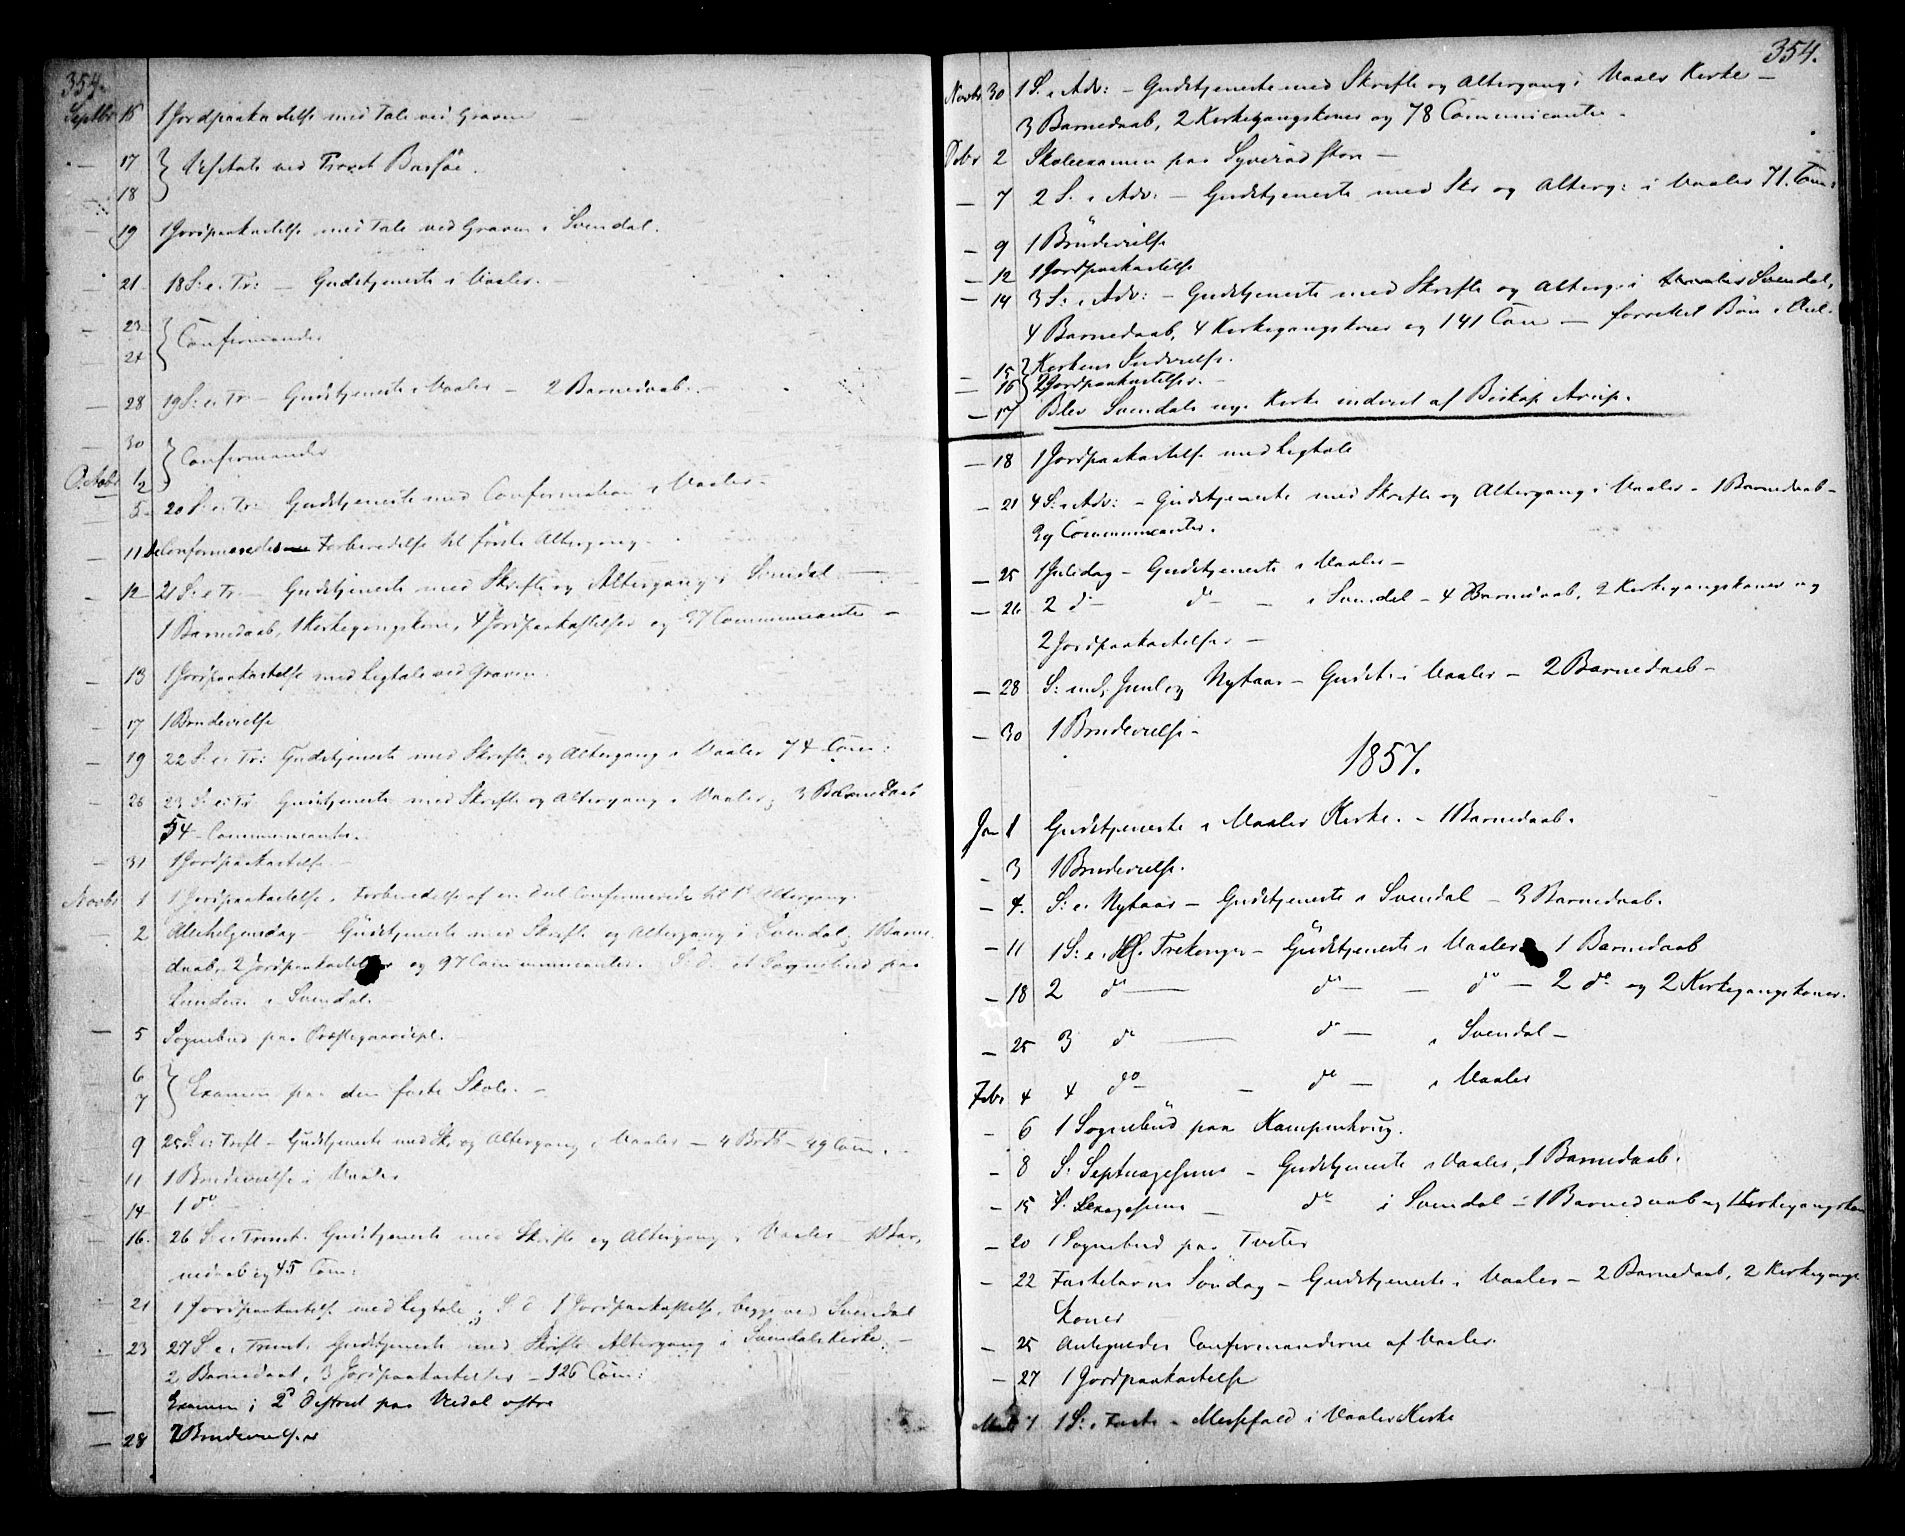 354.
Septbr 15 1 Jordpaakastelse med Tale ved Graven —
— 17 } Visitats ved Provst Bassøe.
18
— 19 1 Jordpaakastelse med Tale ved Graven i Svendal.
— 21 18 S: e: Tr: — Gudstjeneste i Vaaler. —
— 23 } Confirmander
24
— 28 19 S: e: Tr — Gudstjeneste i Vaaler — 2 Barnedaab. —
— 30 } Confirmander
Octobr 1
2
5 20 S: e: Tr: Gudstjeneste med Confirmation i Vaaler —
— 11 Forberedelse til første Altergang —
— 12 21 S: e: Tr. — Gudstjeneste med Skrifte og Altergang i Svendal —
1 Barnedaab, 1 Kirkegangskone, 4 Jordpaakastelser og 97 Communicanter —
— 13 1 Jordpaakastelse med Ligtale ved Graven.
— 17 1 Brudevielse
— 19 22 S: e: Tr: Gudstjeneste med Skrifte og Altergang i Vaaler 74 Com:
— 26 23 S: e: Tr Gudstjeneste med Skrifte og Altergang i Vaaler, 3 Barnedaab
54 Communicanter.
— 31 1 Jordpaakastelse. —
Novbr 1 1 Jordpaakastelse. Forberedelse af en Deel Confirmerede til 1e Altergang.
— 2 Allehelgensdag — Gudstjeneste med Skrifte og Altergang i Svendal, 1 Barne-
daab, 2 Jordpaakastelser og 97 Communicanter. S. D. et Sognebud paa
i Svendal.
— 5 Sognebud paa Præstegaardspl. —
6 } Examen paa den faste Skole. —
7
9 25 S: e: Tref — Gudstjeneste med Skr og Altergang i Vaaler — 4 Brdb — 49 Com. —
11 1 Brudevielse i Vaaler
14 1 do
16 26 S: e: Trinit. Gudstjeneste med Skrifte og Altergang i Vaaler 1 Bar-
nedaab og 45 Com:
21 1 Jordpaakastelse med Ligtale; S. d. 1 Jordpaakastelse, begge ved Svendal
23 27 S. e. Trinit. Gudstjeneste med Skrifte Altergang i Svendals Kirke —
2 Barnedaab, 3 Jordpaakastelser — 126 Com:
Examen i 2d Distrect paa Vedal østre
— 28 2 Brudevielser
354.
Novbr 30 1 S. i Adv: — Gudstjeneste med Skrifte og Altergang i Vaaler Kirke —
3 Barnedaab, 2 Kirkegangskoner og 78 Communicanter —
Debr 2 Skoleexamen paa Syverødston —
— 7 2 S. i Adv: — Gudstjeneste med Skr og Alterg: i Vaaler 71 Com:
— 9 1 Brudevielse
— 12 1 Jordpaakastelse
— 14 3 S: i Adv: — Gudstjeneste med Skrifte og Alterg. i Svendal,
4 Barnedaab, 4 Kirkegangskoner og 141 Com — forrettet Bøn i Anl.
— 15 } Kirkens Indvielse.
— 16 2 Jordpaakastelser. —
— 17 Blev Svendals nye Kirke indviet af Biskop Arup.
— 18 1 Jordpaakastelse med Ligtale
— 21 4 S: i Adv: — Gudstjeneste med Skrifte og Altergang i Vaaler — 1 Barnedaab —
29 Communicanter.
— 25 1 Juledag — Gudstjeneste i Vaaler —
— 26 2 do — do — — i Svendal — 4 Barnedaab, 2 Kirkegangskoner og
2 Jordpaakastelser —
— 28 S: ml. Juul og Nytaar — Gudst. i Vaaler — 2 Barnedaab —
— 30 1 Brudevielse —
1857.
Jan 1 Gudstjeneste i Vaaler Kirke. — 1 Barnedaab.
— 3 1 Brudevielse.
— 4. S: e. Nytaar — Gudstjeneste i Svendal — 3 Barnedaab.
— 11 1 S: e. Hel. Trekonger — Gudstjeneste i Vaaler 1 Barnedaab
— 18 2 do — do — — do — 2 do og 2 Kirkegangskoner.
— 25 3 do — do — i Svendal —
Febr 4 4 do — — do — i Vaaler
— 6 1 Sognebud paa Kampenhaug.
— 8 S: Septuagesima — Gudstjeneste i Vaaler, 1 Barnedaab.
— 15 S. Sexagesima — do i Svendal — 1 Barnedaab og 1 Kirkegangskon
— 20 1 Sognebud paa Tveter
— 22 Fastelavns Søndag — Gudstjeneste i Vaaler — 2 Barnedaab, 2 Kirkegangs-
koner
— 25 Antegnedes Confirmanderne af Vaaler.
— 27 1 Jordpaakastelse
Marts 1. 1 S: i Faste — Messefald i Vaaler Kirke